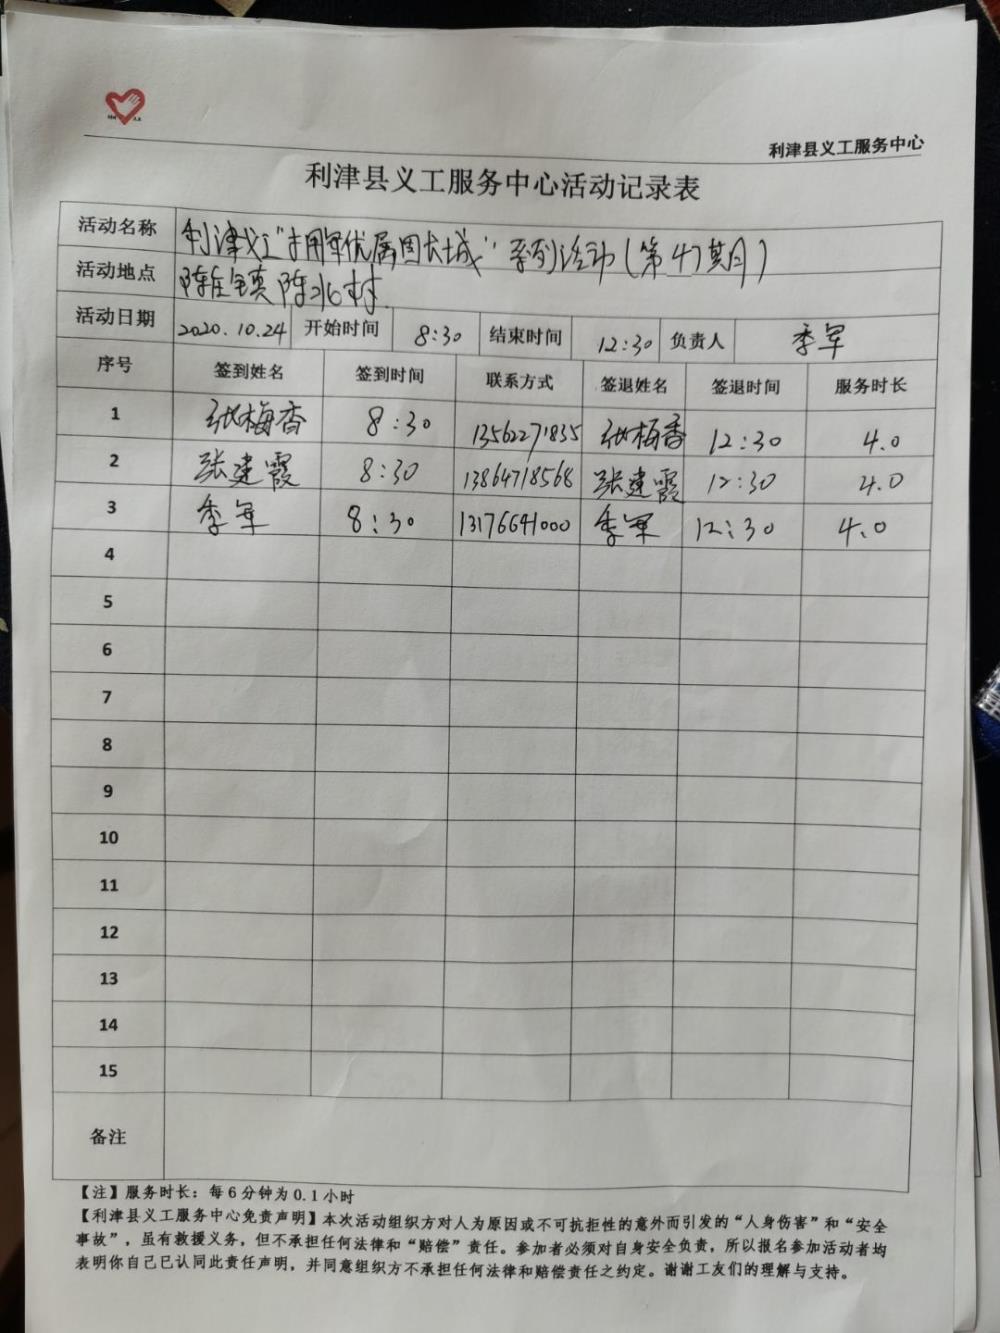 利津县义工服务中心
利津县义工服务中心活动记录表
活动名称 利津义工"拥军优属固长城"系列活动(第47期)
活动地点 陈庄镇陈北村
活动日期 2020.10.24 开始时间 8:30 结束时间 12:30 负责人 季军
序号 签到姓名 签到时间 联系方式 签退姓名 签退时间 服务时长
1 张梅香 8:30 13562271835 张梅香 12:30 4.0
2 张建霞 8:30 13864718568 张建霞 12:30 4.0
3 季军 8:30 13176641000 季军 12:30 4.0
4
5
6
7
8
9
10
11
12
13
14
15
备注
【注】服务时长:每6分钟为0.1小时
【利津县义工服务中心免责声明】本次活动组织方对人为原因或不可抗拒性的意外而引发的“人身伤害”和“安全
事故”,虽有救援义务,但不承担任何法律和“赔偿”责任。参加者必须对自身安全负责,所以报名参加活动者均
表明你自己已认同此责任声明,并同意组织方不承担任何法律和赔偿责任之约定。谢谢工友们的理解与支持。